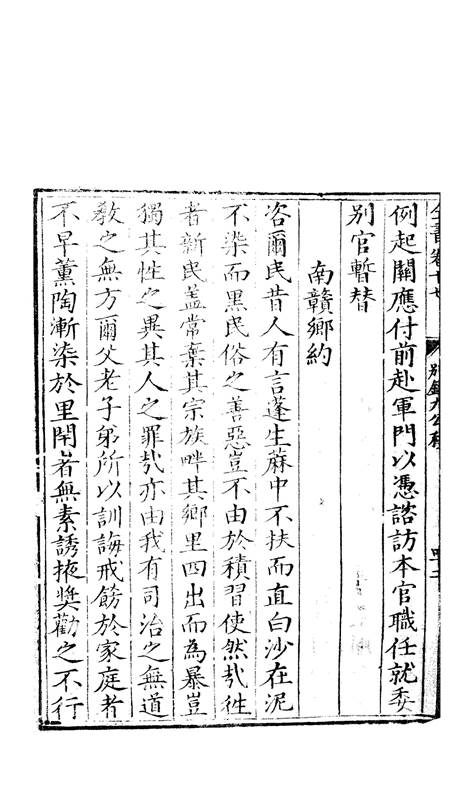 全書卷十七 別錄九公移 四二
例起關應付前赴軍門以憑諮訪本官職任就委
別官暫替
南贛鄉約
咨爾民昔人有言蓬生蔴中不扶而直白沙在泥
不染而黑民俗之善惡豈不由於積習使然㢤徃
者新民盖常棄其宗族畔其鄉里四出而為暴豈
獨其性之異其人之罪㢤亦由我有司治之無道
敎之無方爾父老子弟所以訓誨戒飭於家庭者
不早薰陶漸染於里閈者無素誘掖奬勸之不行